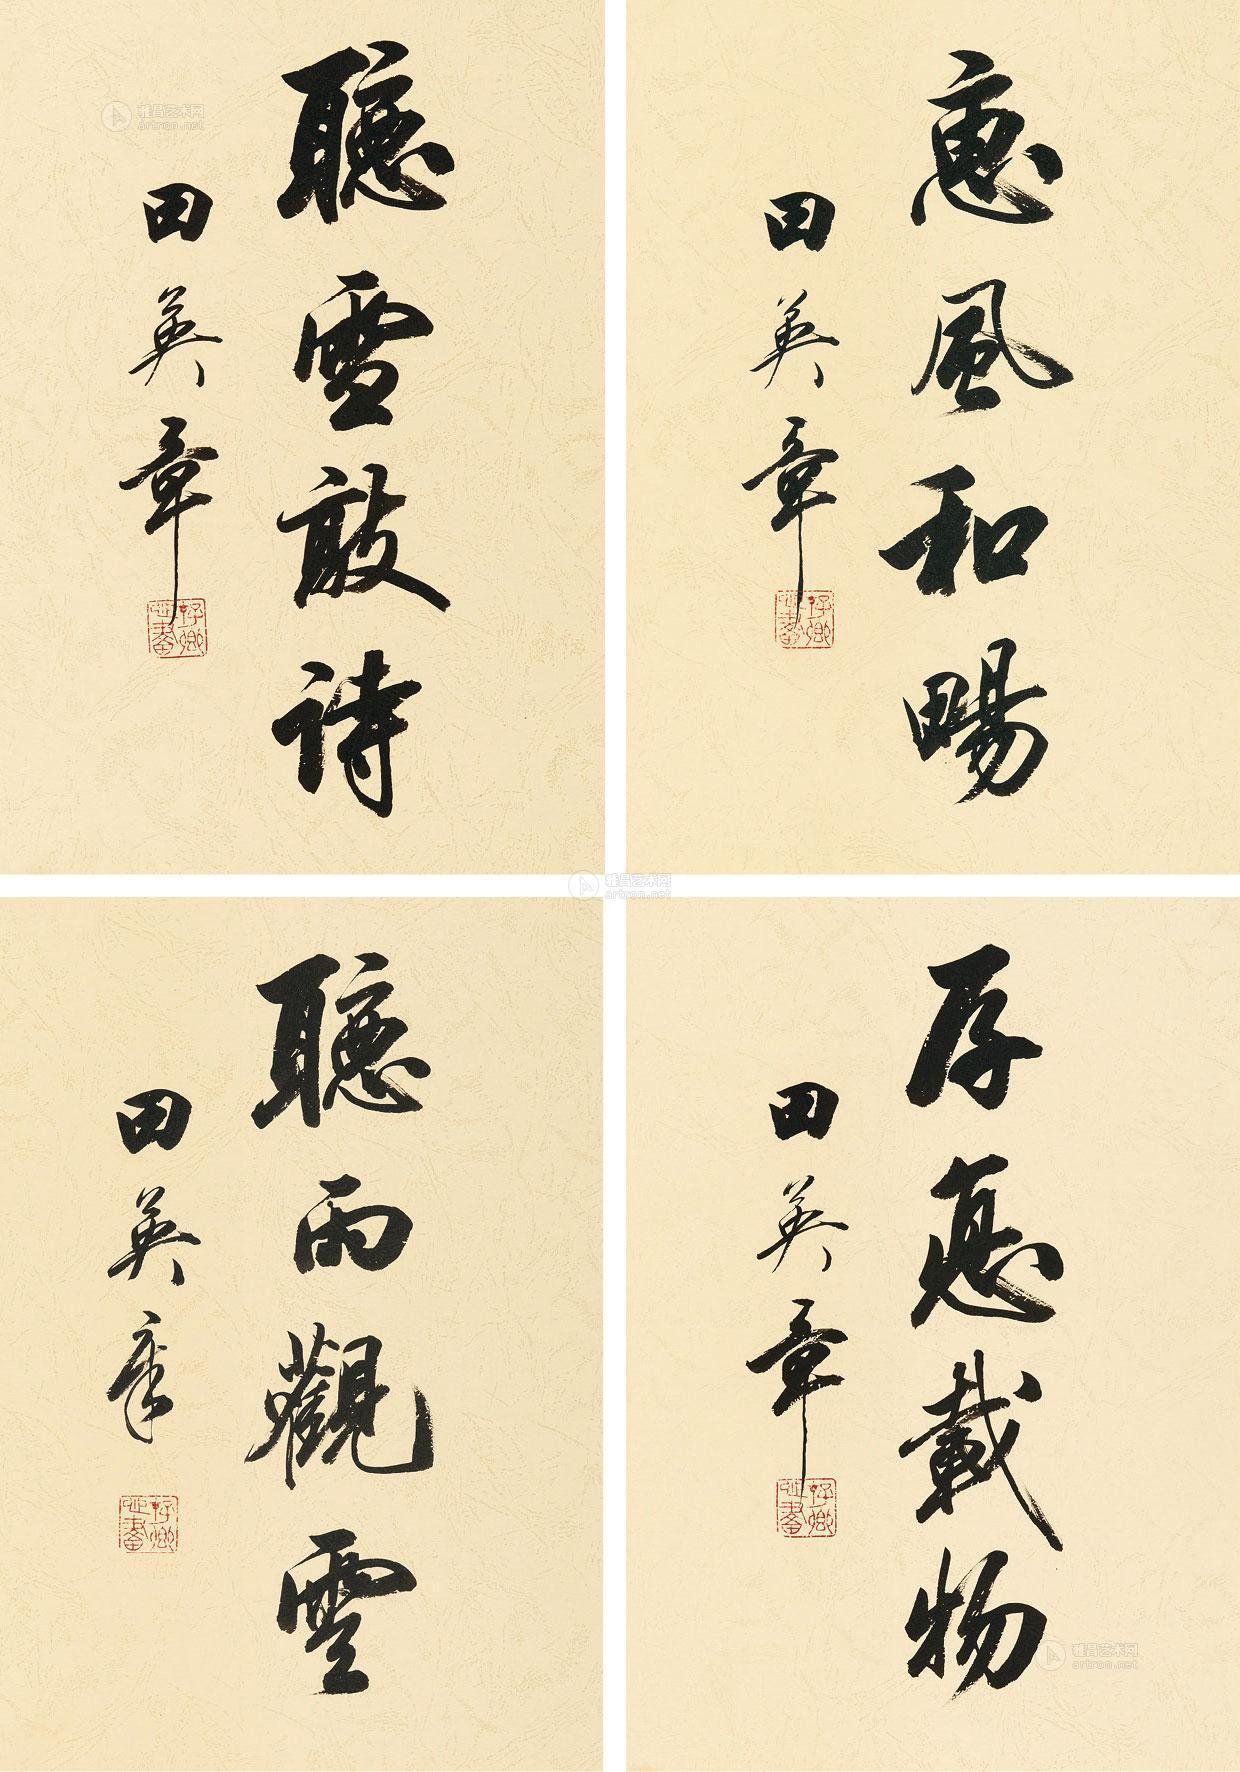 惠風和暢
田英章
聽雪敲詩
田英章
厚德載物
田英章
聽雨觀雲
田英章
雅昌艺术网
artron.net
雅昌艺术网
artron.net
雅昌艺术网
artron.net